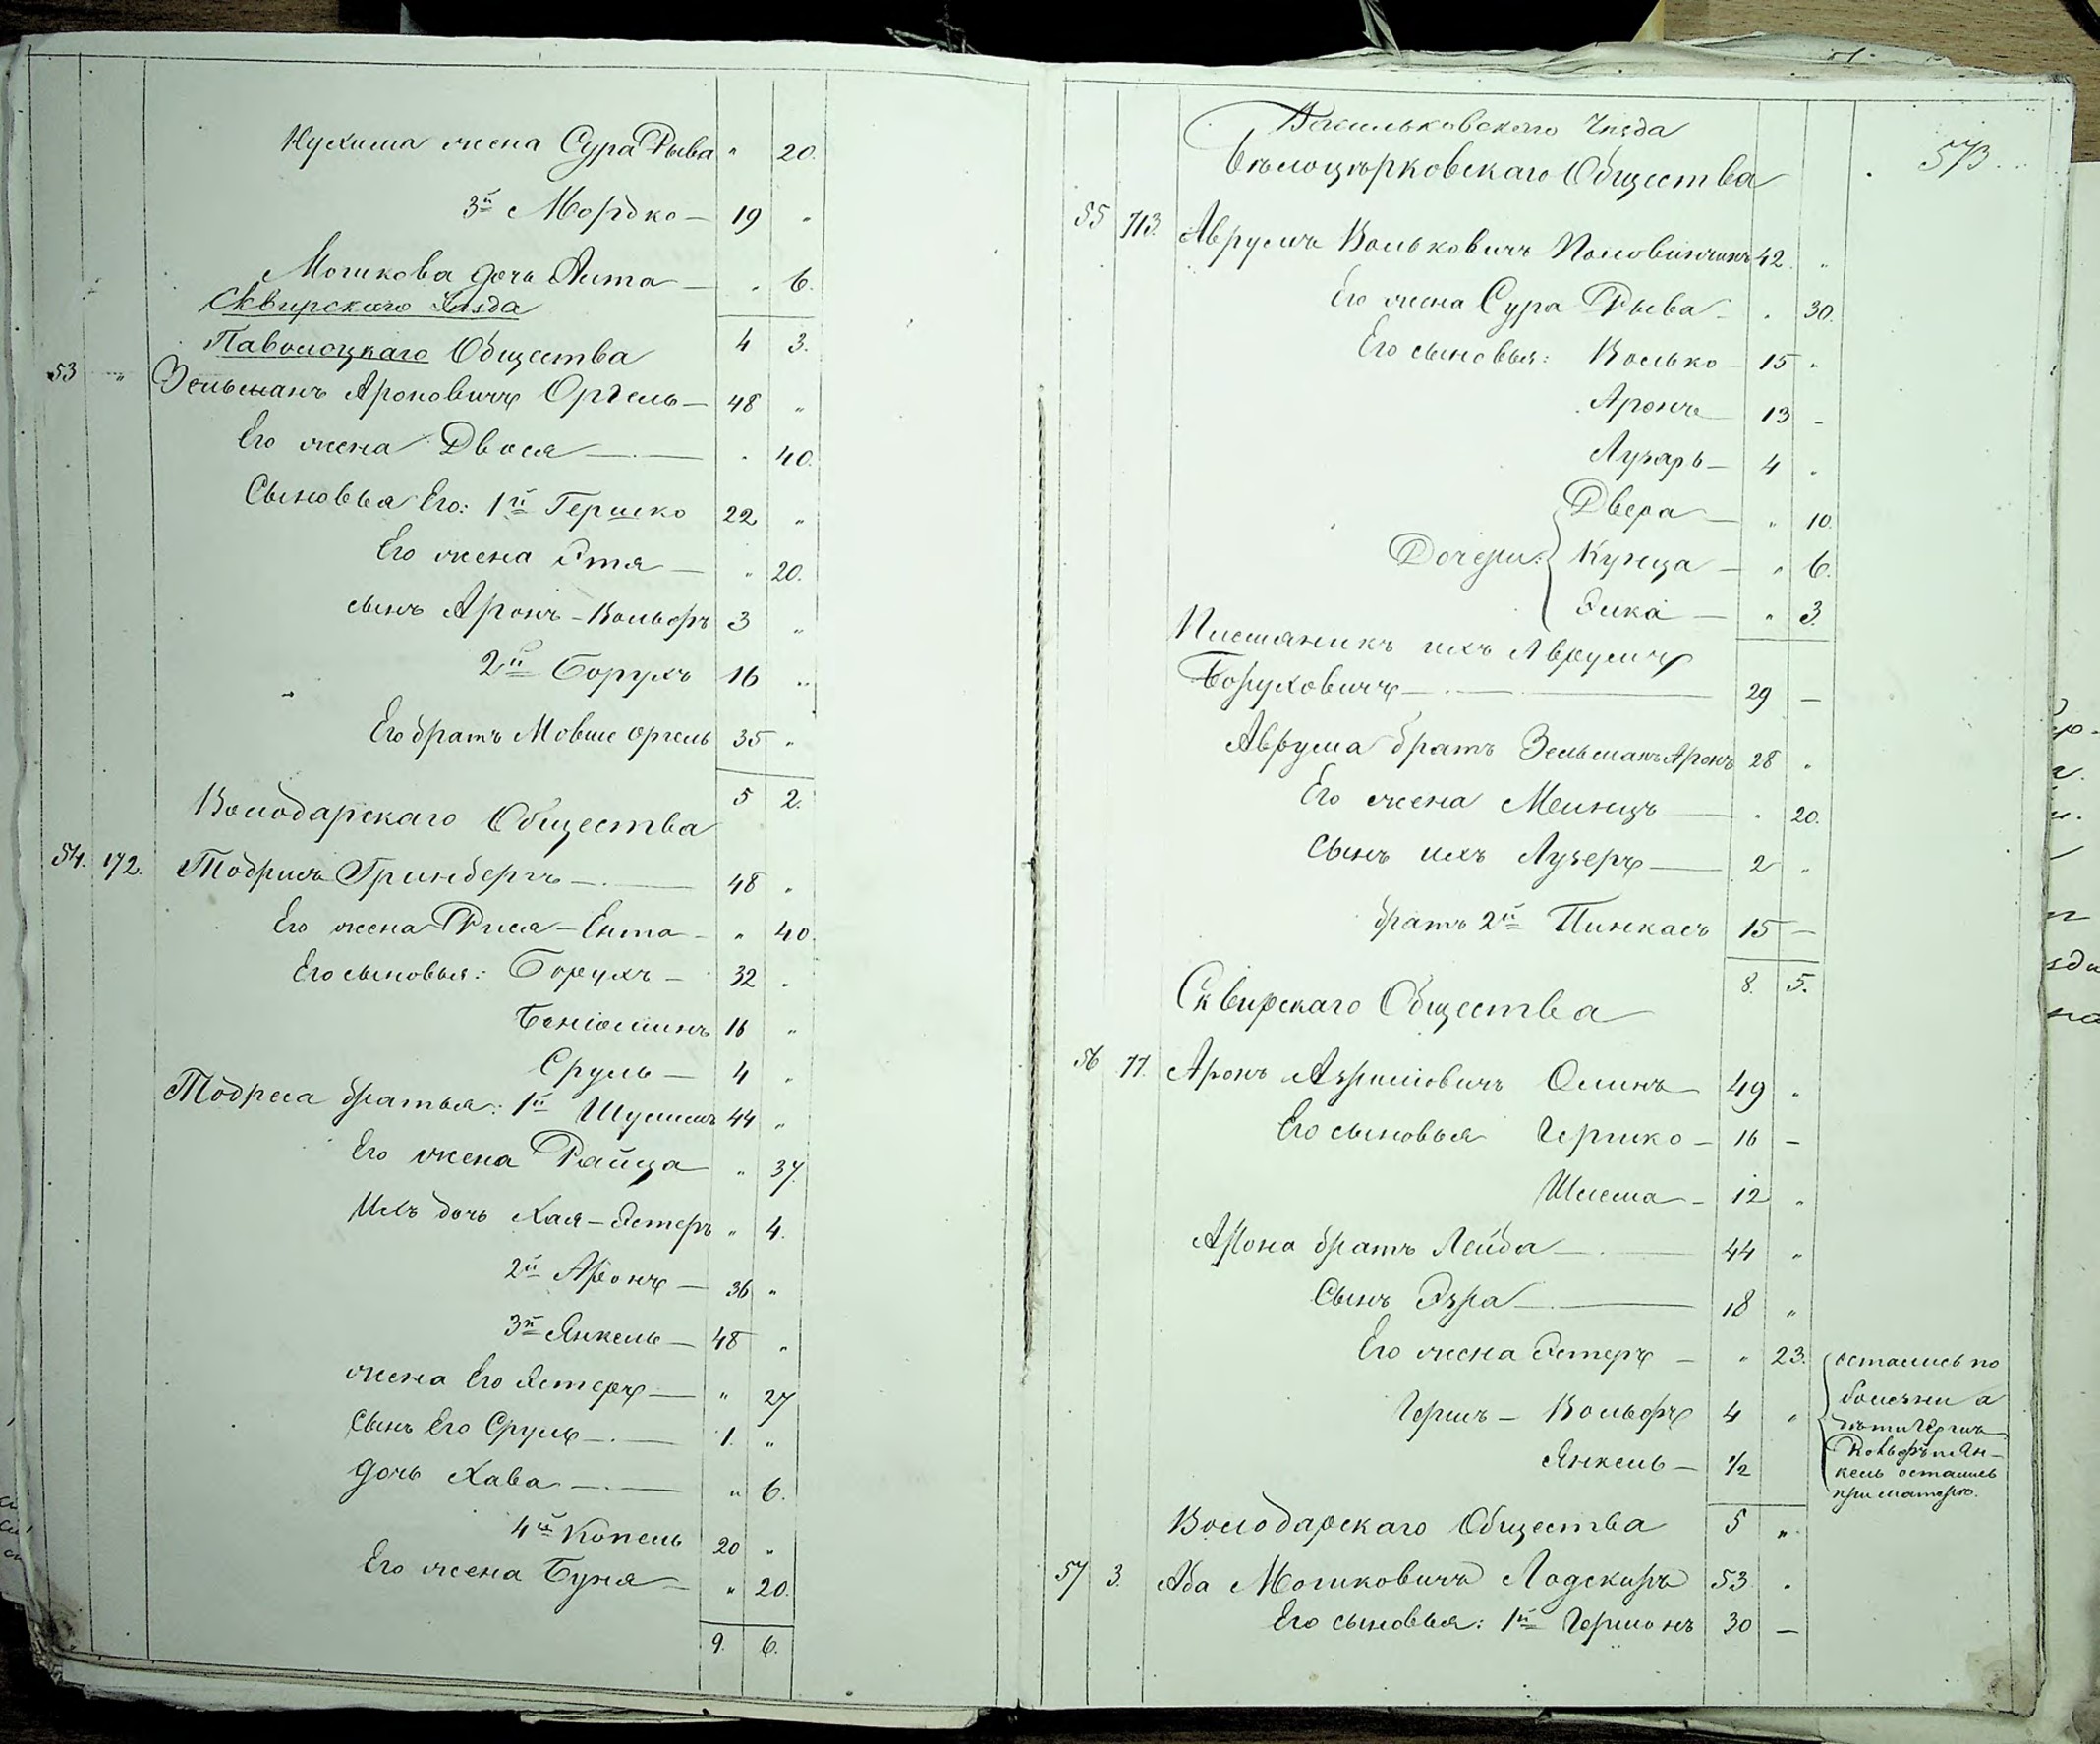 Нухима жена Сура Рыва " 20.
3й Мордко — 19 "
Мошкова дочь Анта — " 6.
Сквирского Уезда
4 3.
Паволоцкаго Общества
53 " Зельманъ Ароновичъ Оргель — 48 "
Его жена Двося — " 40.
Сыновья Его: 1й Гершко 22 "
Его жена Этя — " 20.
сынъ Аронъ-Вольфъ 3 "
2й Борухъ 16 "
Его братъ Мовше Оргель 35 "
5 2.
Володарскаго Общества
54. 172. Тодрисъ Гринбергъ — 48 "
Его жена Рися-Ента — " 40.
Его сыновья: Борухъ — 32 "
Беніоминъ 16 "
Сруль — 4 "
Тодреса братья: 1й Шулимъ 44 "
Его жена Райца " 37.
Ихъ дочь Хая-Эстеръ " 4.
2й Аронъ — 36 "
3й Янкель — 48 "
жена Его Эстеръ — " 27
Сынъ Его Сруль — 1. "
дочь Хава — " 6.
4й Копель 20 "
Его жена Буня — " 20.
9. 6.
573
Васильковского Уезда
Бѣлоцѣрковскаго Общества
55 713. Аврумъ Вольковичъ Половинчикъ 42 "
Его жена Сура Рыва — " 30.
Его сыновья: Волько — 15 "
Аронъ 13 —
Лузаръ — 4 "
Двера — " 10.
Дочери: Кунца — " 6.
Эйка — " 3.
Племяникъ ихъ Аврумъ
Боруховичъ — 29 —
Аврума братъ Зельманъ Аронъ 28 "
Его жена Меинцъ — " 20.
Сынъ ихъ Лузеръ — 2 "
братъ 2й Пинкасъ 15 —
8. 5.
Сквирскаго Общества
56 77. Аронъ Аврумовичъ Олинъ 49 "
Его сыновья Гершко — 16 —
Шлема — 12 "
Арона братъ Лейба — 44 "
Сынъ Эзра — 18 "
Его жена Эстеръ — " 23.
Гершъ — Вольфъ 4 "
Янкель — 1/2
остались по
болезни а
дѣти Гершъ
Вольфъ и Ян-
кель остались
при матерю.
5 "
Володарскаго Общества
57 3. Аба Мошковичъ Лодскиръ 53 "
Его сыновья: 1й Гершонъ 30 —